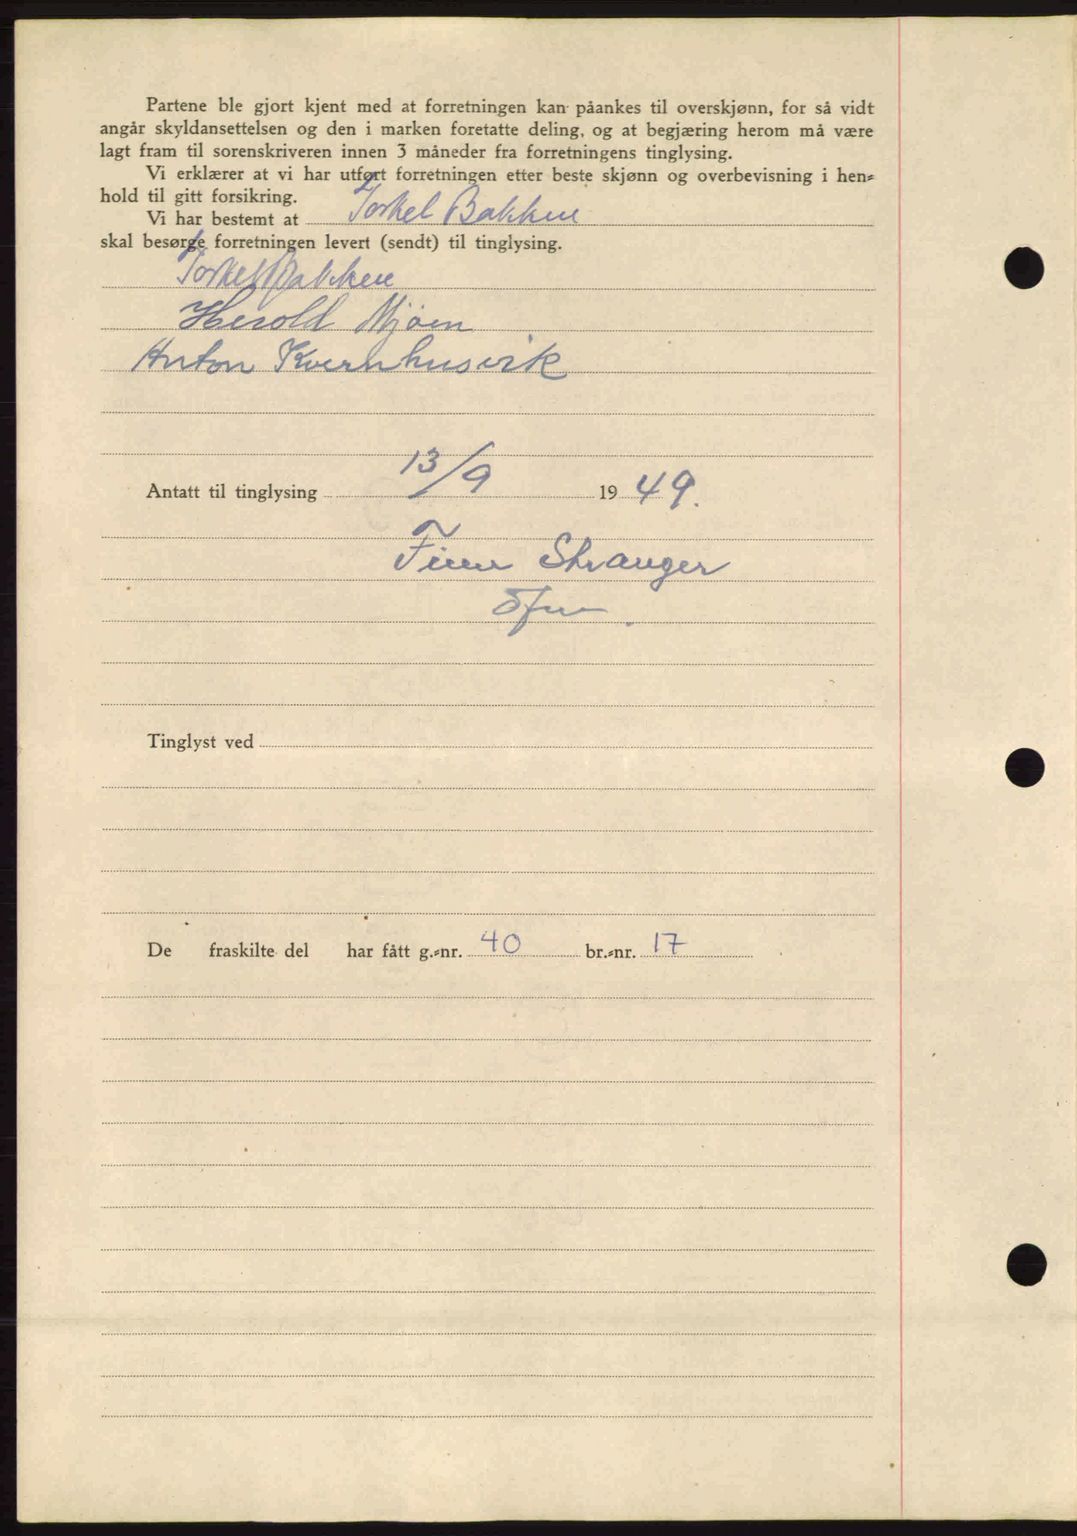 Partene ble gjort kjent med at forretningen kan påankes til overskjønn, for så vidt
angår skyldansettelsen og den i marken foretatte deling, og at begjæring herom må være
lagt fram til sorenskriveren innen 3 måneder fra forretningens tinglysing.
Vi erklærer at vi har utført forretningen etter beste skjønn og overbevisning i hen=
hold til gitt forsikring.
Vi har bestemt at Torkel Bakken
skal besørge forretningen levert (sendt) til tinglysing.
Torkel Bakken
Herold Mjøen
Anton Kvernhusvik
Antatt til tinglysing 13/9 1949.
Finn Stranger
Tinglyst ved
De fraskilte del har fått g.=nr. 40 br.=nr. 17